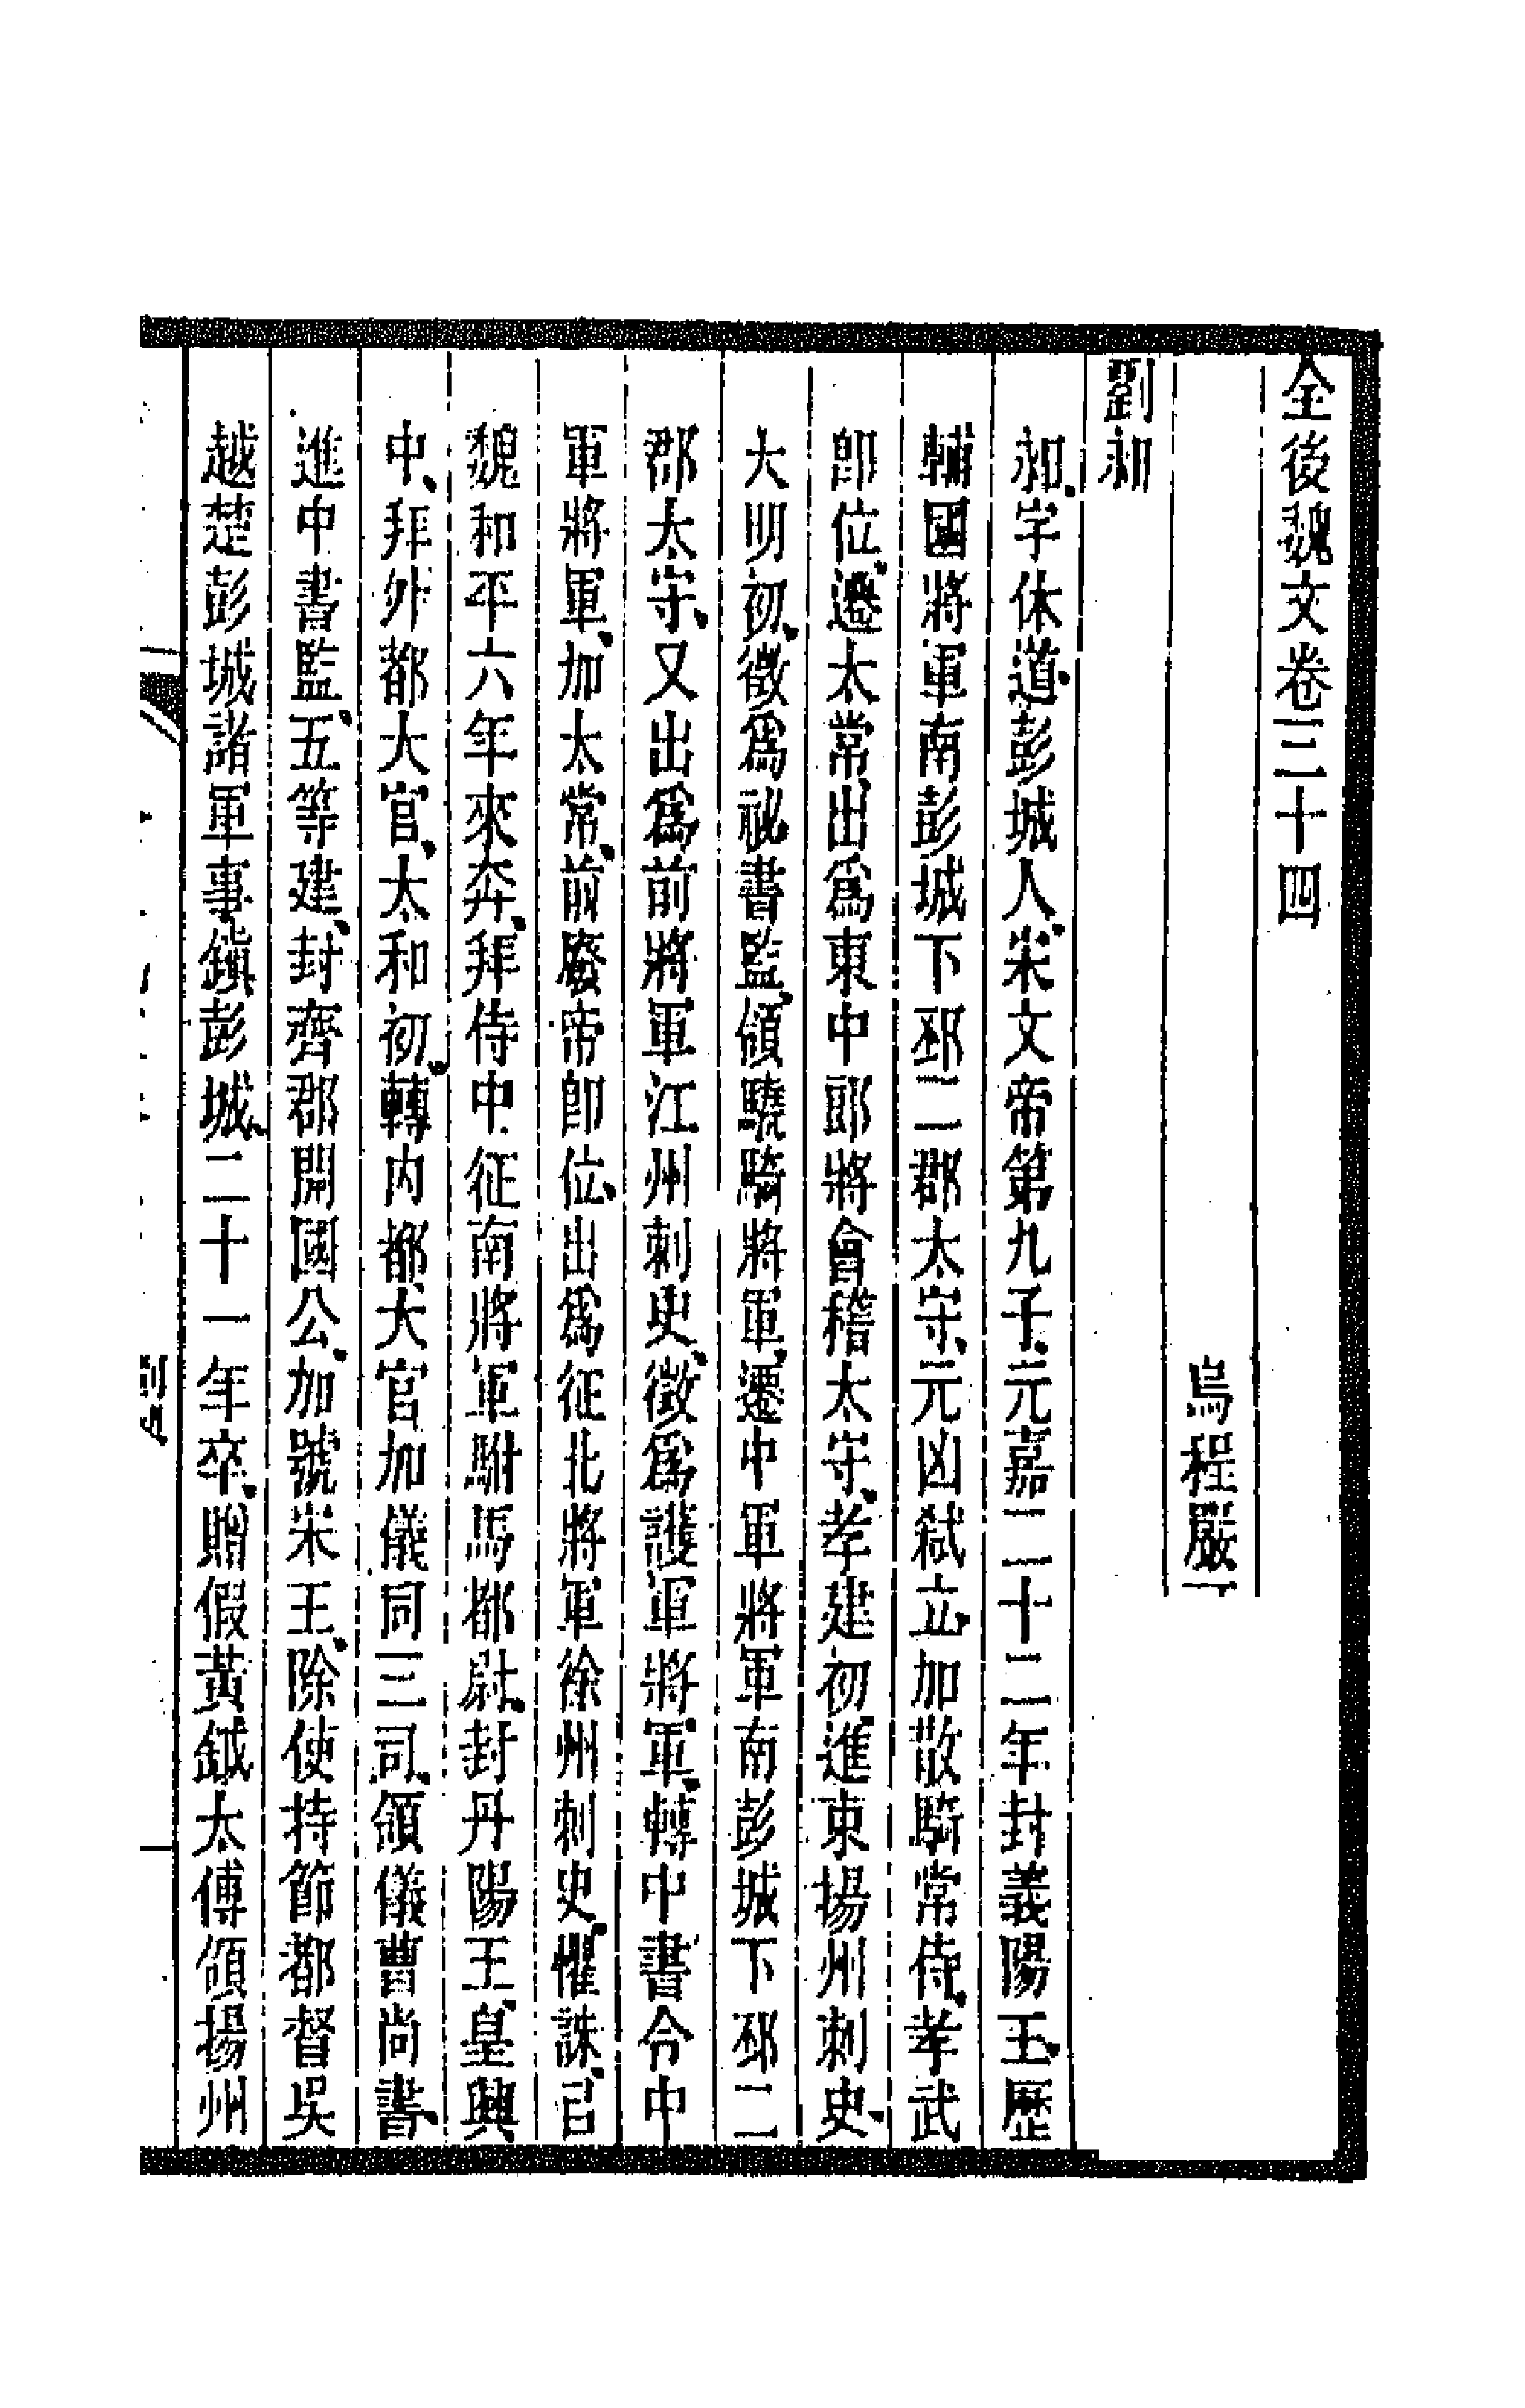 全後魏文卷三十四
烏程嚴
劉昶
昶、字休道、彭城人、宋文帝第九子、元嘉二十二年封義陽王、歷
輔國將軍南彭城下邳二郡太守、元凶弑立、加散騎常侍、孝武
卽位、遷太常、出爲東中郎將會稽太守、孝建初、進東揚州刺史、
大明初、徵爲祕書監、領驍騎將軍、遷中軍將軍南彭城下邳二
郡太守、又出爲前將軍江州刺史、徵爲護軍將軍、轉中書令中
軍將軍、加太常、前廢帝卽位、出爲征北將軍徐州刺史、懼誅、㠯
魏和平六年來奔、拜侍中征南將軍駙馬都尉、封丹陽王、皇興
中、拜外都大官、太和初、轉內都大官加儀同三司、領儀曹尚書、
進中書監、五等建、封齊郡開國公、加號宋王、除使持節都督吳
越楚彭城諸軍事鎮彭城、二十一年卒、贈假黃鉞太傅領揚州